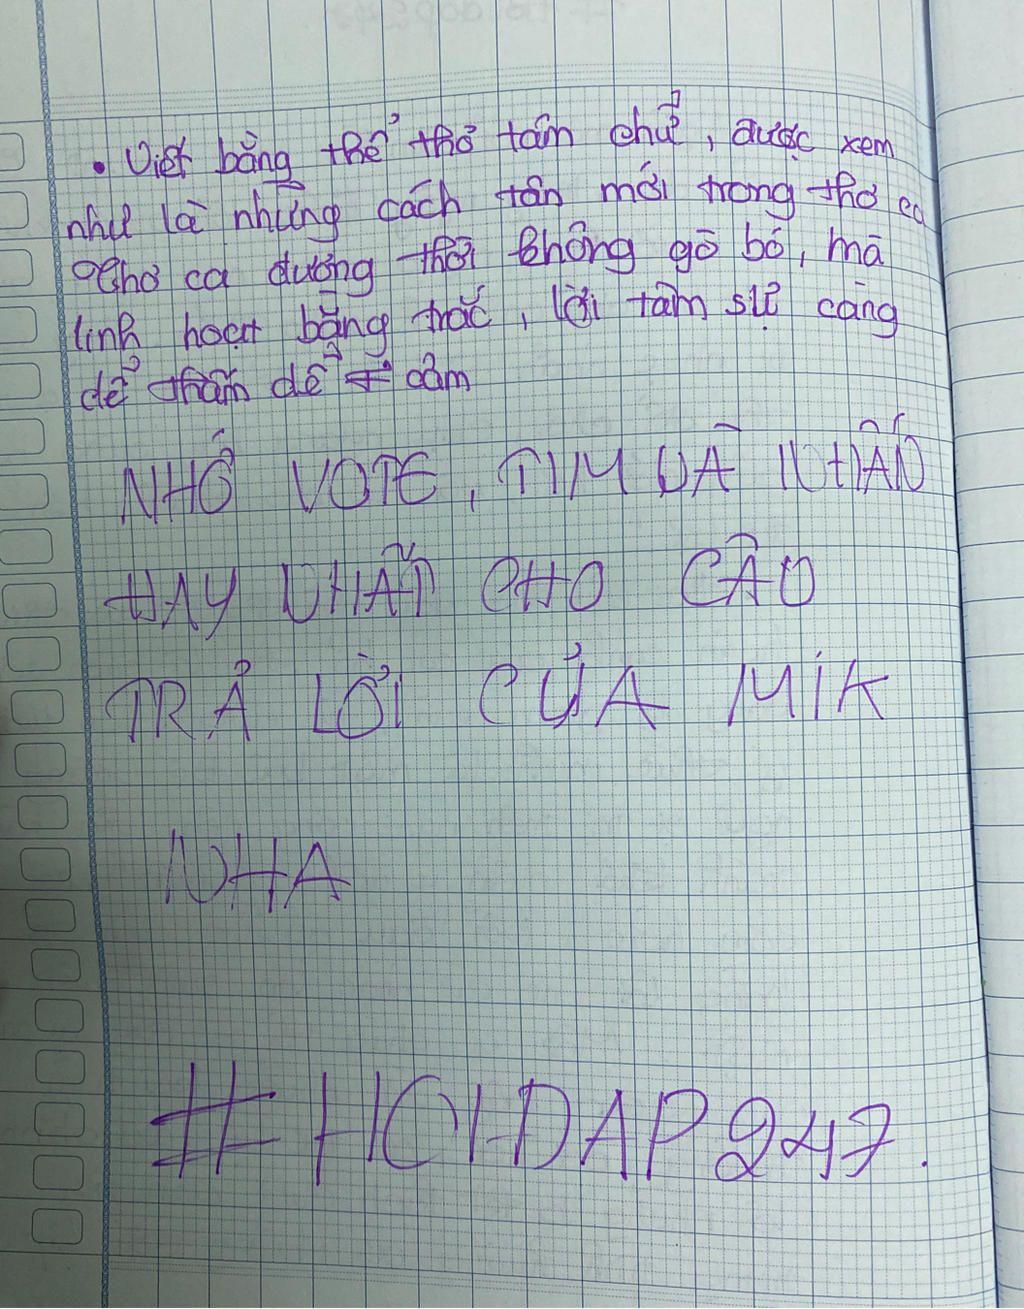 • Viết bằng thể thơ tám chữ, được xem
như là những cách tân mới trong thơ ca
Thơ ca đương thời không gò bó, mà
linh hoạt bằng trắc, lời tâm sự càng
dễ thấm dễ cảm
NHỚ VOTE, TIM VÀ NHẤN
HAY NHẤT CHO CÂU
TRẢ LỜI CỦA MIK
NHA
#HOIDAP247.